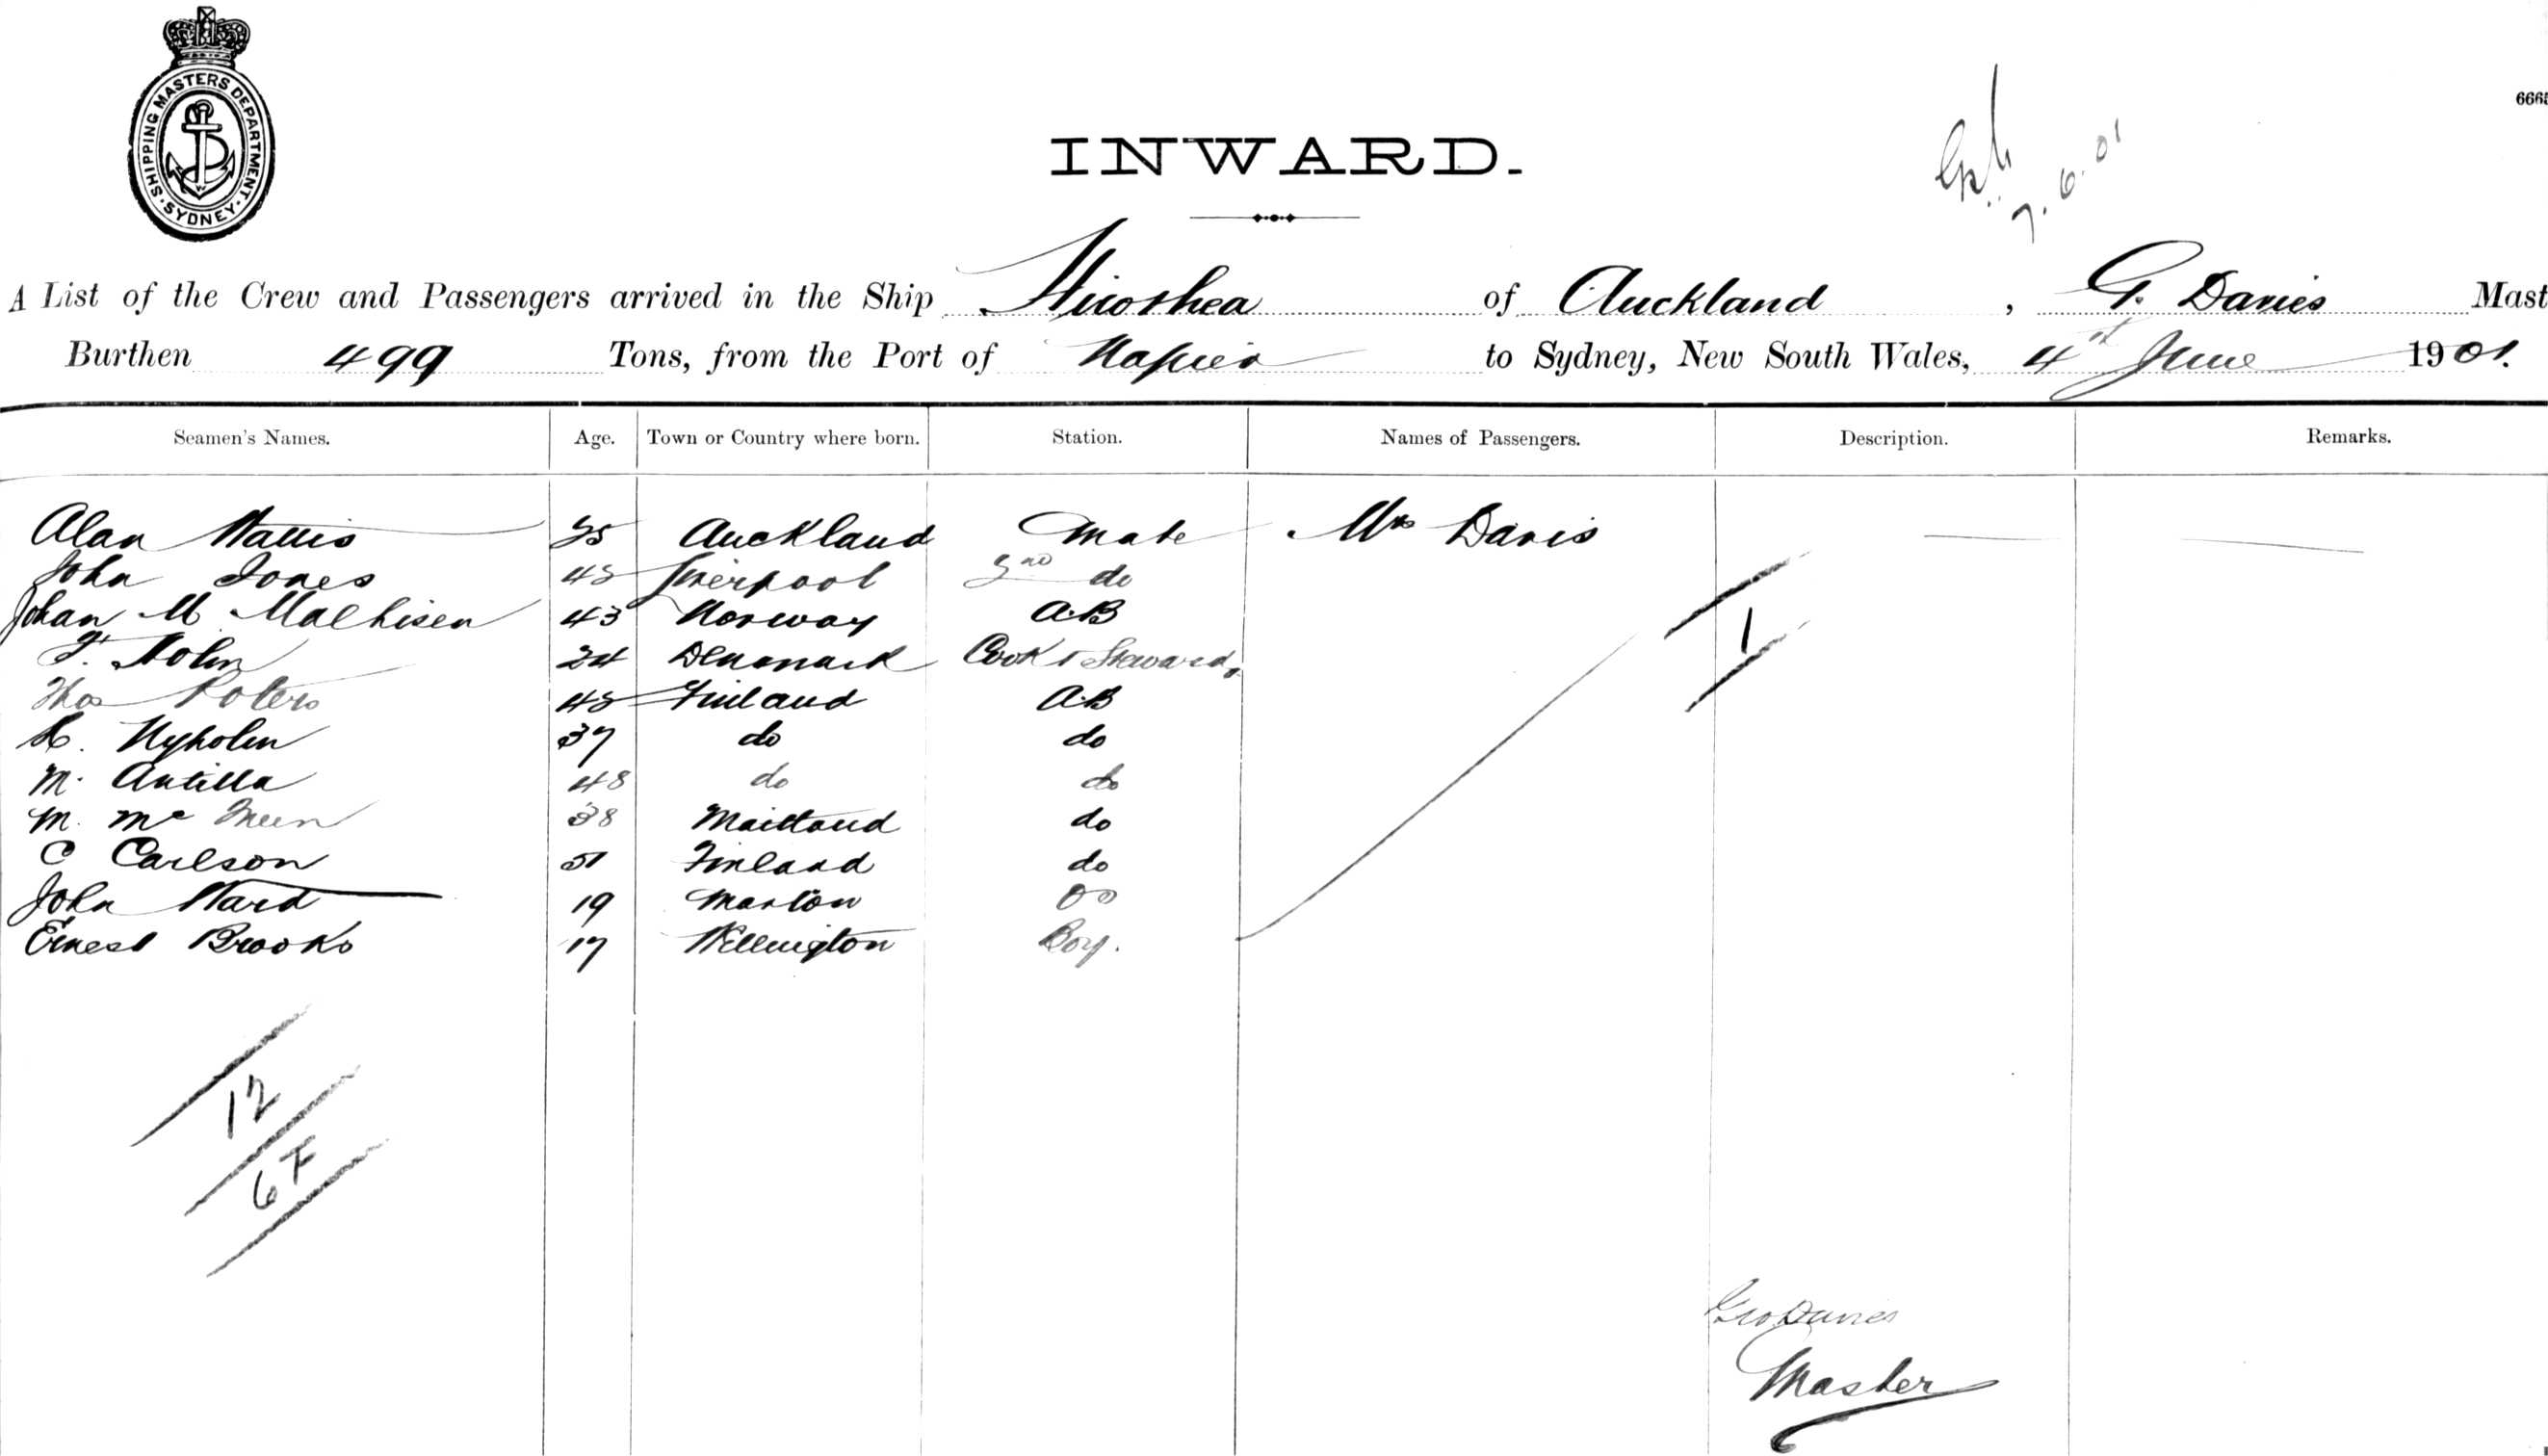 SHIPPING MASTERS DEPARTMENT
SYDNEY
INWARD.
7.6.01
6665
A List of the Crew and Passengers arrived in the Ship of Auckland, G. Davies Mast
Burthen 499 Tons, from the Port of Napier to Sydney, New South Wales, 4th June 1901.
Seamen's Names. Age. Town or Country where born. Station. Names of Passengers. Description. Remarks.
Alan Wallis 25 Auckland Mate Mrs Davis
John Jones 45 Liverpool 2nd do
Johan M Mathisen 43 Norway A.B
F. Holm 24 Denmark Cook & Steward
Thos Peters 45 Finland A.B
Nyholm 37 do do
M. Antilla 48 do do
M. Mc 38 Maitland do
C Carlson 51 Finland do
John Ward 19 Marton OS
Ernest Brooks 17 Wellington Boy.
1
12
6 F
Geo Davies
Master